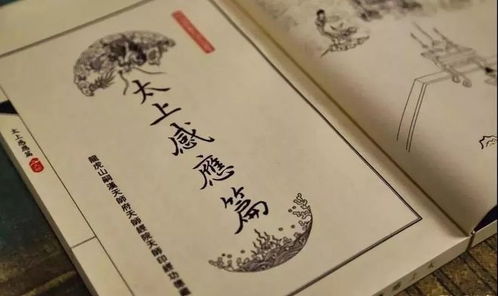 太上感應篇
龍虎山嗣漢天師府天師經院天師印經功德藏
太上感應篇